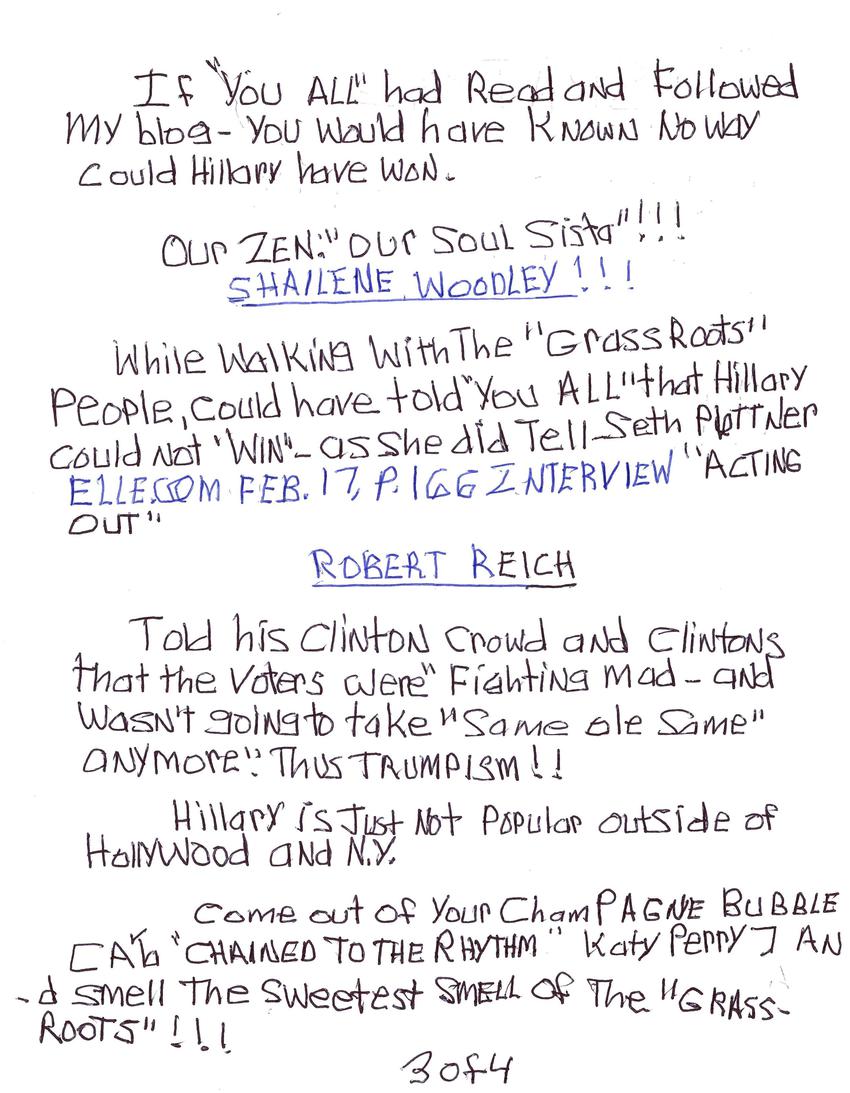 If "YOU ALL" had Read and Followed
My blog - YOU Would have KNOWN NO WAY
Could Hillary have WON.
Our ZEN:" OUr Soul Sista"!!!
SHAILENE WOODLEY!!!
While Walking With The "GrassRoots"
People, Could have told "You ALL" that Hillary
Could Not "WIN" - as She did Tell Seth Plattner
ELLE.COM FEB. 17, P. 166 INTERVIEW "ACTING
OUT"
ROBERT REICH
Told his Clinton Crowd and Clintons
that the Voters were "Fighting mad - and
Wasn't going to take "Same ole Same"
anymore". Thus TRUMPISM!!
Hillary is Just Not Popular outside of
Hollywood and N.Y.
Come out of Your ChamPAGNE BUBBLE
"CHAINED TO THE RHYTHM" Katy Perry] AN
-d smell The Sweetest SMELL OF The "GRASS-
ROOTS"!!!
3 of 4